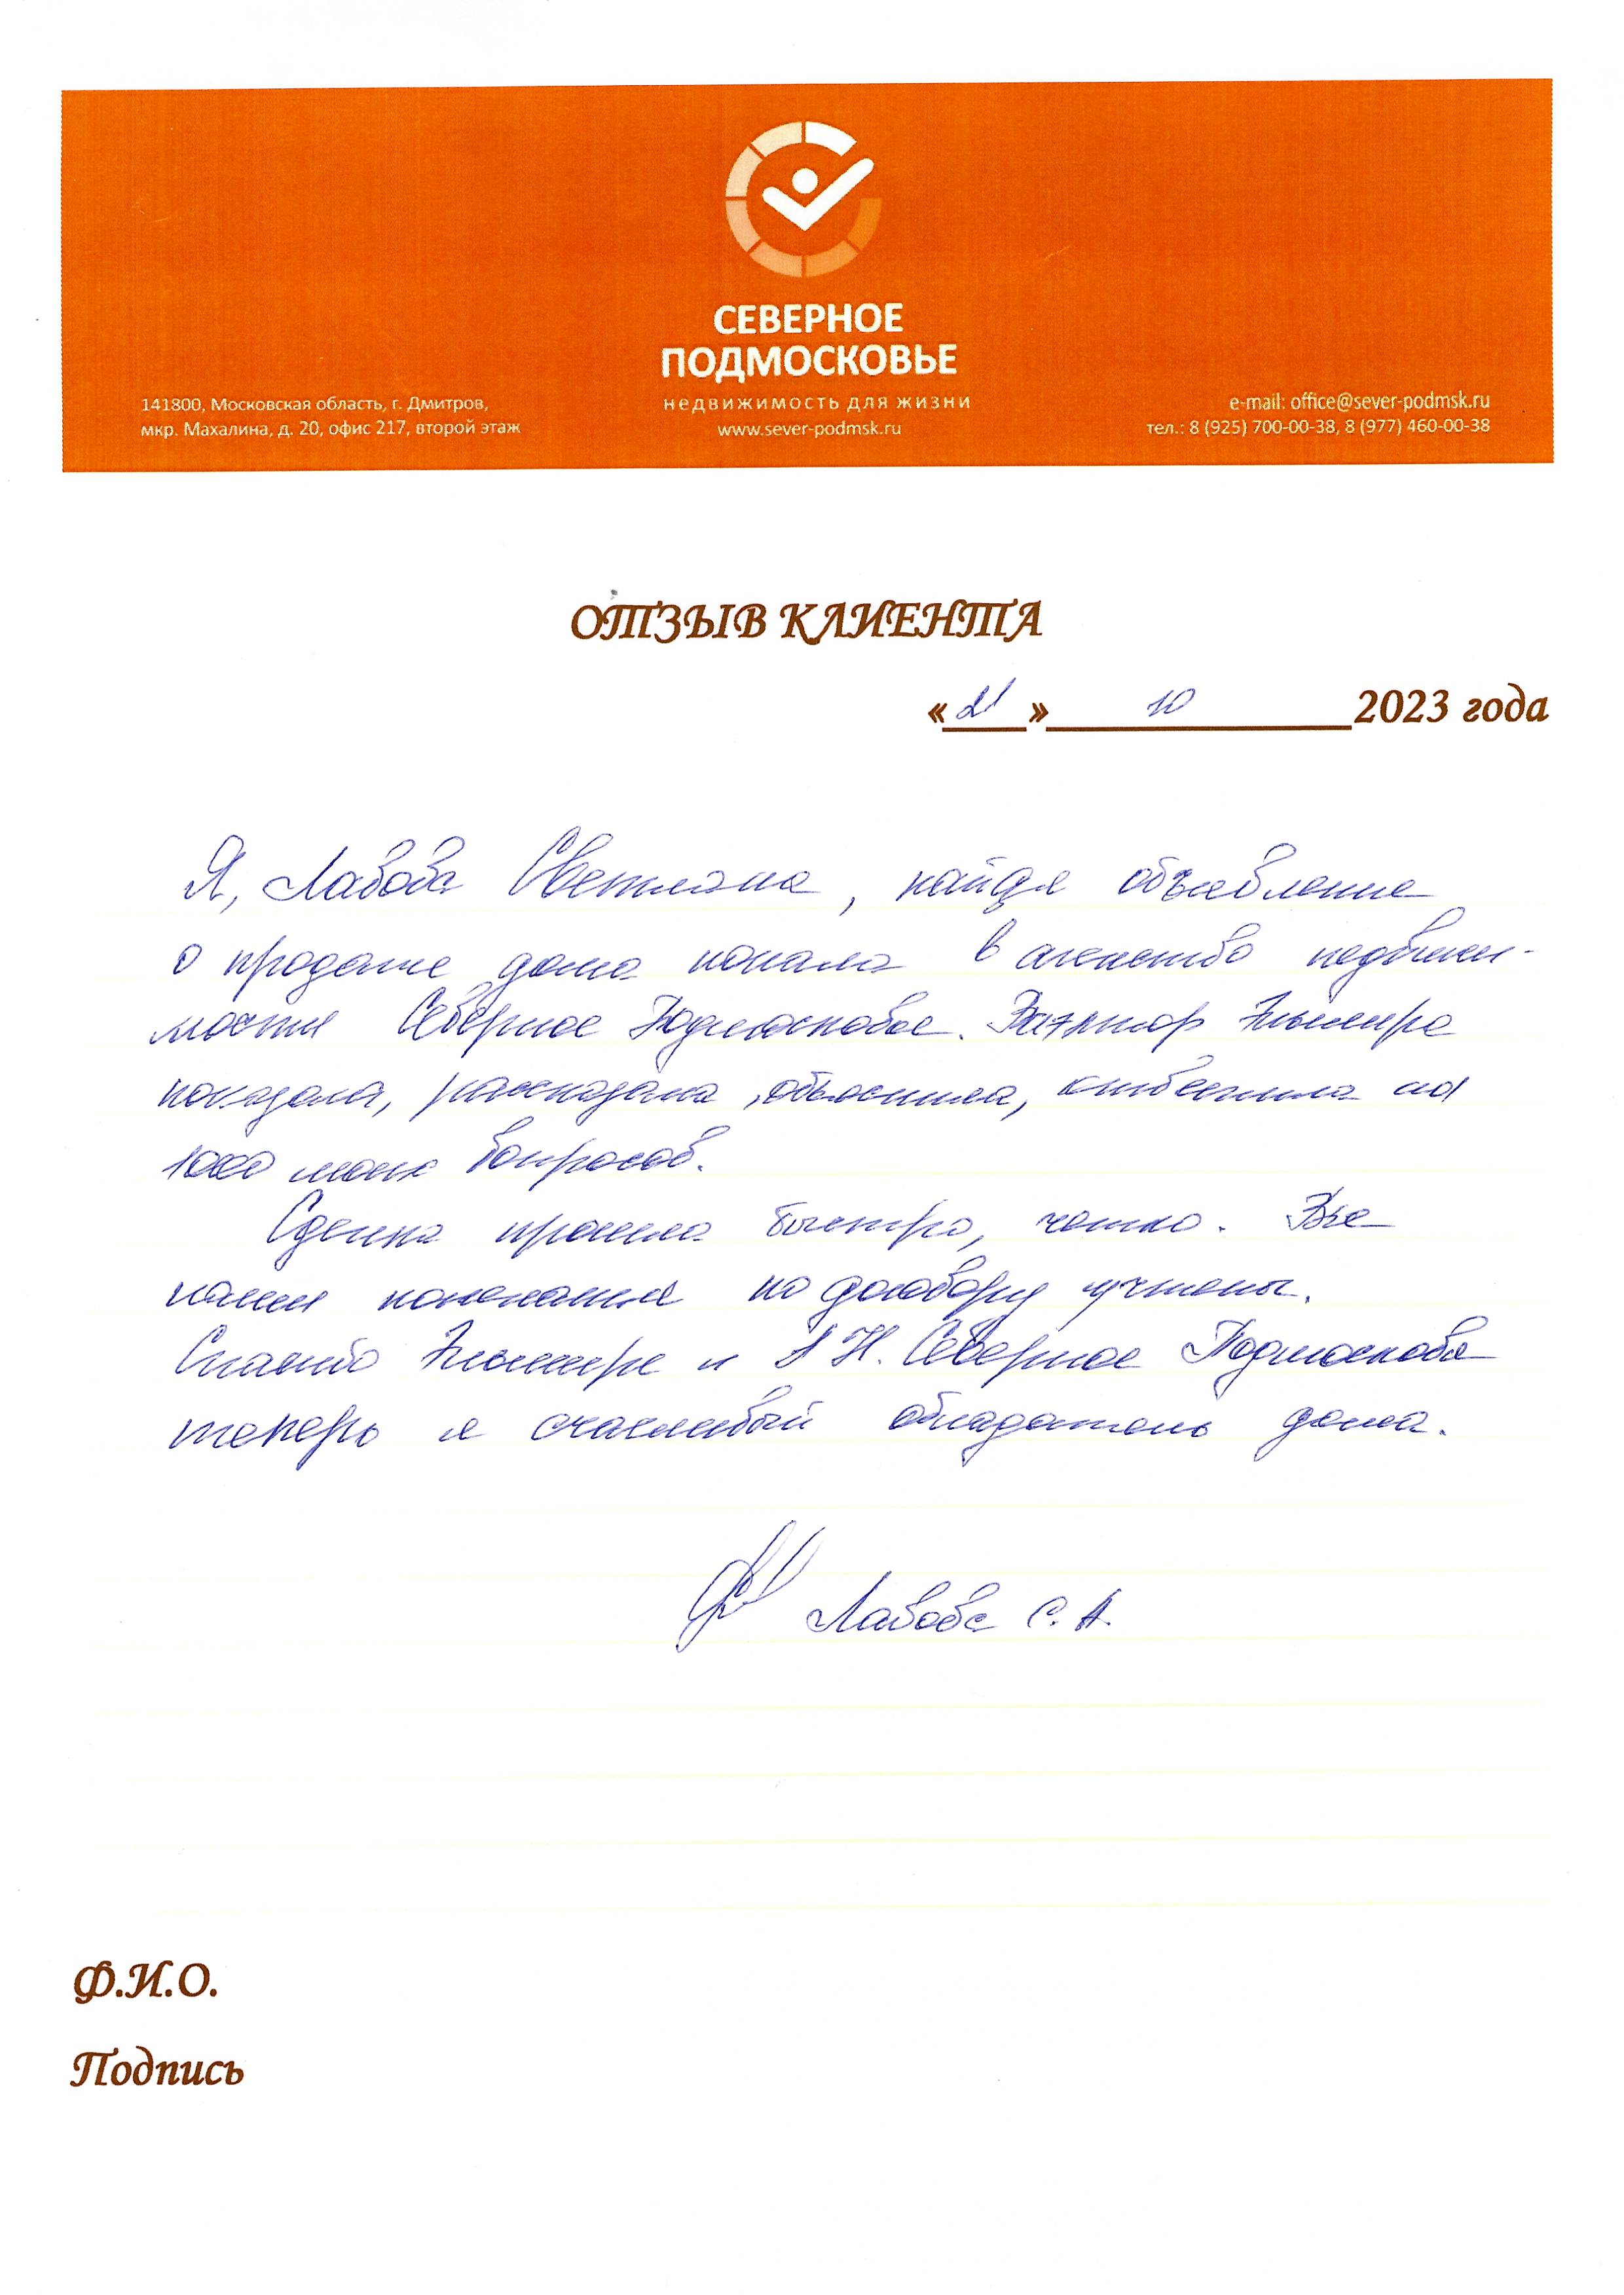 СЕВЕРНОЕ
ПОДМОСКОВЬЕ
недвижимость для жизни
www.sever-podmsk.ru
141800, Московская область, г. Дмитров,
мкр. Махалина, д. 20, офис 217, второй этаж
e-mail: office@sever-podmsk.ru
тел.: 8 (925) 700-00-38, 8 (977) 460-00-38
ОТЗЫВ КЛИЕНТА
«21» 10 2023 года
Я, Лавова Светлана, найдя объявление
о продаже дома попала в агенство недвижи-
мости Северное Подмосковье. Риэлтор Эльмира
показала, рассказала, объяснила, ответила на
1000 моих вопросов.
Сделка прошла быстро, четко. Все
наши пожелания по договору учтены.
Спасибо Эльмире и АН. Северное Подмосковье
теперь я счасливый обладатель дома.
Лавова С. А.
Ф.И.О.
Подпись